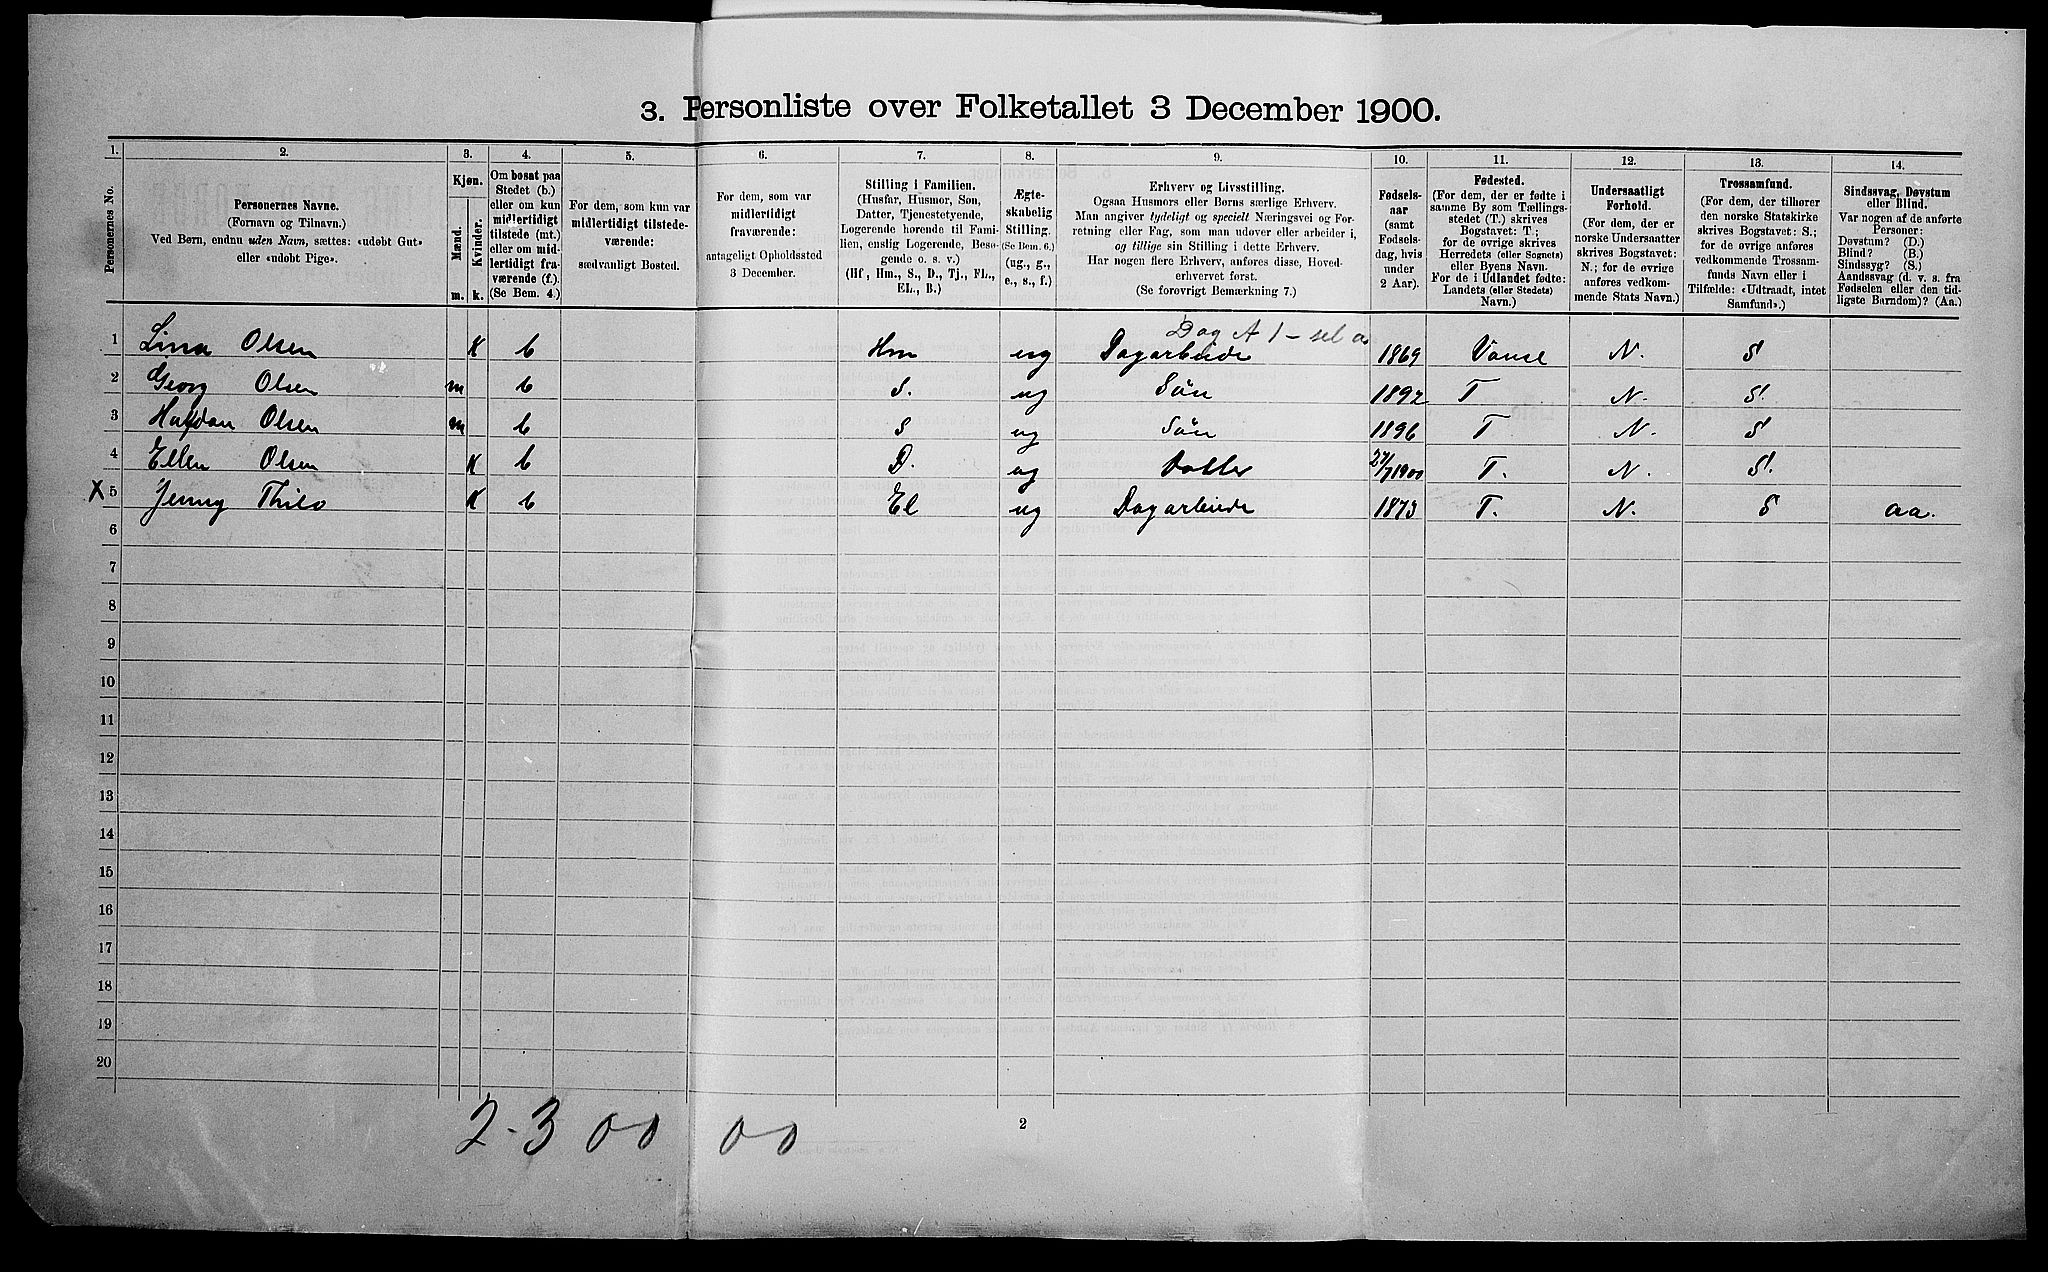 3. Personliste over Folketallet 3 December 1900.
1. 2. 3. 4. 5. 6. 7. 8. 9. 10. 11. 12. 13. 14.
Personernes No.
Personernes Navne.
(Fornavn og Tilnavn.)
Ved Børn, endnu uden Navn, sættes: «udøbt Gut»
eller «udøbt Pige».
Kjøn.
Mænd.
Kvinder.
m. k.
Om bosat paa
Stedet (b.)
eller om kun
midlertidigt
tilstede (mt.)
eller om mid-
lertidigt fra-
værende (f.)
(Se Bem. 4.)
For dem, som kun var
midlertidigt tilstede-
værende:
sædvanligt Bosted.
For dem, som var
midlertidigt
fraværende:
antageligt Opholdssted
3 December.
Stilling i Familien.
(Husfar, Husmor, Søn,
Datter, Tjenestetyende,
Logerende hørende til Fami-
lien, enslig Logerende, Besø-
gende o. s. v.)
(Hf., Hm., S., D., Tj., FL.,
EL., B.)
Ægte-
skabelig
Stilling.
(Se Bem. 6.)
(ug., g.,
e., s., f.)
Erhverv og Livsstilling.
Ogsaa Husmors eller Børns særlige Erhverv.
Man angiver tydeligt og specielt Næringsvei og For-
retning eller Fag, som man udøver eller arbeider i,
og tillige sin Stilling i dette Erhverv.
Har nogen flere Erhverv, anføres disse, Hoved-
erhvervet først.
(Se forøvrigt Bemærkning 7.)
Fødsels-
aar
(samt
Fødsels-
dag, hvis
under
2 Aar).
Fødested.
(For dem, der er fødte i
samme By som Tællings-
stedet (T.) skrives
Bogstavet: T.;
for de øvrige skrives
Herredets (eller Sognets)
eller Byens Navn.
For de i Udlandet fødte:
Landets (eller Stedets)
Navn.)
Undersaatligt
Forhold.
(For dem, der er
norske Undersaatter
skrives Bogstavet:
N.; for de øvrige
anføres vedkom-
mende Stats Navn.)
Trossamfund.
(For dem, der tilhører
den norske Statskirke
skrives Bogstavet: S.;
for de øvrige anføres
vedkommende Trossam-
funds Navn eller i
Tilfælde: «Udtraadt, intet
Samfund».)
Sindssvag, Døvstum
eller Blind.
Var nogen af de anførte
Personer:
Døvstum? (D.)
Blind? (B.)
Sindssyg? (S.)
Aandssvag (d. v. s. fra
Fødselen eller den tid-
ligste Barndom)? (Aa.)
Dag A 1 - sel a
1 Lina Olsen K b Hm ug Dagarbeide 1869 Vanse N. S
2 Georg Olsen m b S. ug Søn 1892 T N. S.
3 Halfdan Olsen m b S ug Søn 1896 T N. S
4 Ellen Olsen K b D. ug Datter 27/7 1900 T. N. S.
X 5 Jenny Thilo K b El ug Dagarbeide 1873 T. N. S aa.
6
7
8
9
10
11
12
13
14
15
16
17
18
19
20
2-3 00 00
2